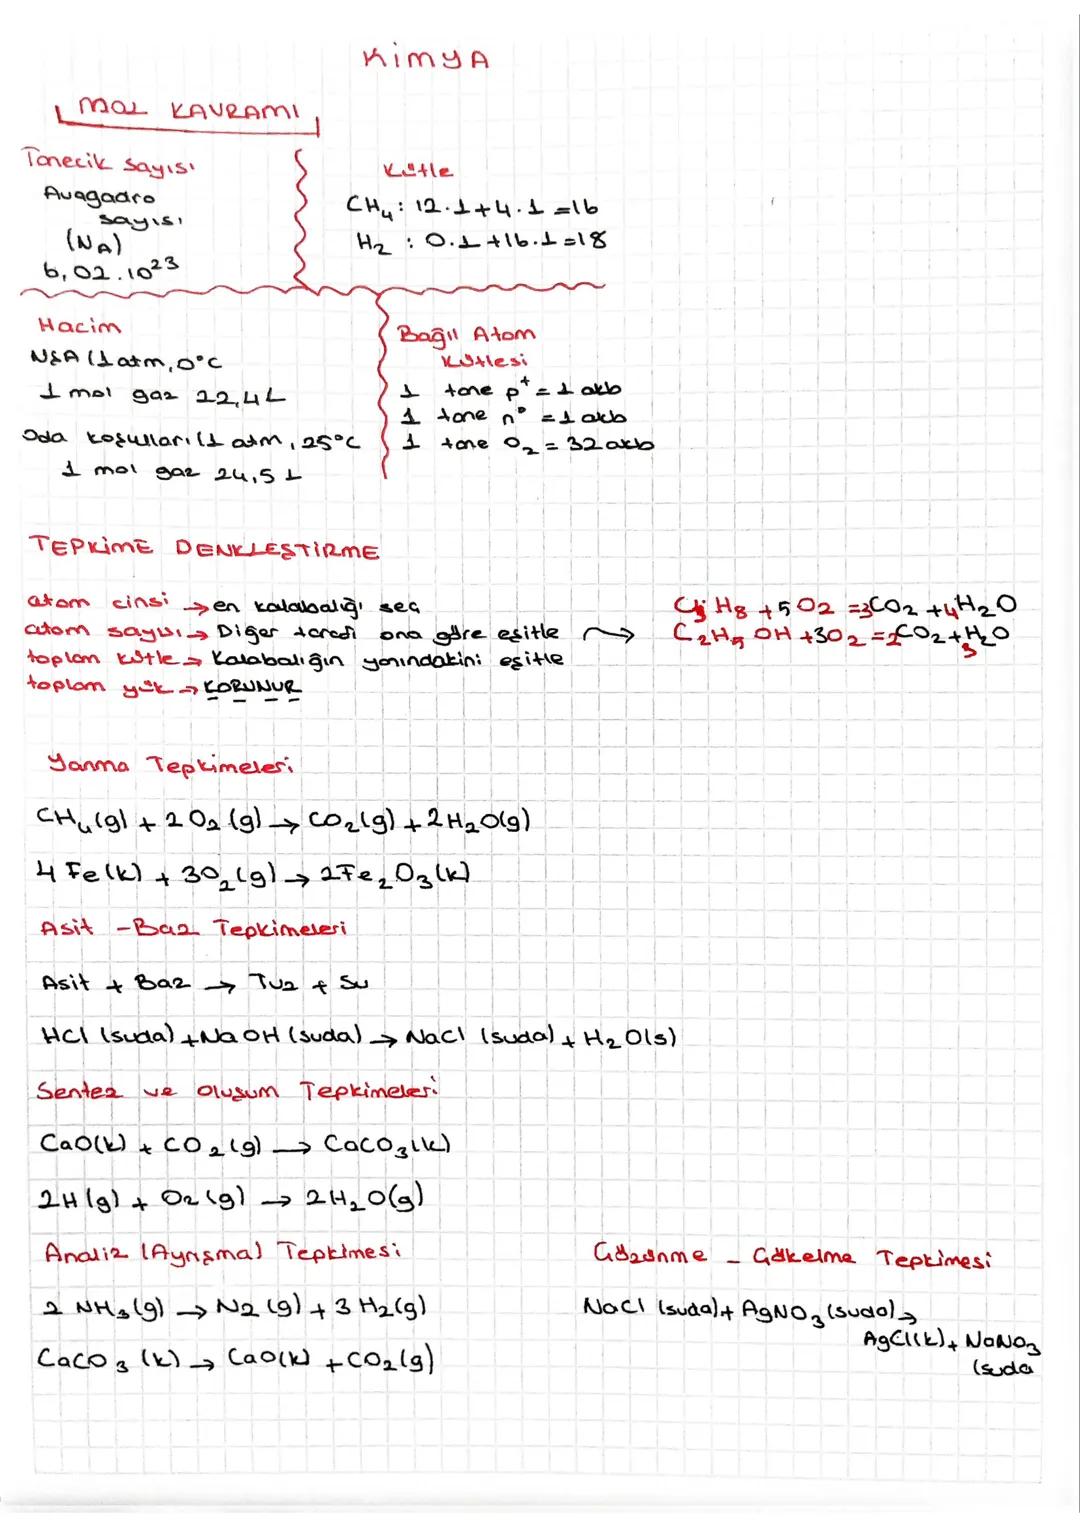 KimYA
MOL KAVRAMI
Tanecik sayısı
Avagadro
sayısı
(NA)
6,02.10²³
Kütle
CH₄: 12.1+4.1=16
H₂ : 0.1+16.1=18
Hacim
NŞA (1 atm, 0°C
1 mol gaz 22,4L
Oda koşulları (1 atm, 25°C
1 mol gaz 24,5 L
Bağıl Atom
Kütlesi
1 tane p⁺ = 1 akb
1 tane n⁰ = 1 akb
1 tane O₂ = 32 akb
TEPKİME DENKLEŞTİRME
atom cinsi → en kalabalığı seç
atom sayısı → Diğer tarafı ona göre eşitle
toplam kütle → Kalabalığın yanındakini eşitle
toplam yük → KORUNUR
C₃H₈ + 5O₂ = 3CO₂ + 4H₂O
C₂H₅OH + 3O₂ = 2CO₂ + 3H₂O
Yanma Tepkimeleri
CH₄(g) + 2O₂(g) → CO₂(g) + 2H₂O(g)
4 Fe(k) + 3O₂(g) → 2Fe₂O₃(k)
Asit - Baz Tepkimeleri
Asit + Baz → Tuz + Su
HCl (suda) + NaOH (suda) → NaCl (suda) + H₂O(s)
Sentez ve Oluşum Tepkimeleri
CaO(k) + CO₂(g) → CaCO₃(k)
2H(g) + O₂(g) → 2H₂O(g)
Analiz (Ayrışma) Tepkimesi
2 NH₃(g) → N₂(g) + 3H₂(g)
CaCO₃ (k) → CaO(k) + CO₂(g)
Çözünme - Çökelme Tepkimesi
NaCl (suda) + AgNO₃ (suda) →
AgCl(k) + NaNO₃
(suda